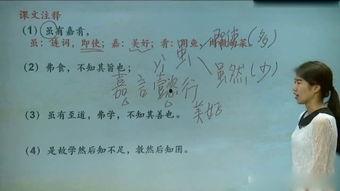 课文注释
(1) 虽有嘉肴,
虽:连词,即使;嘉:美好;肴:
即使(多)
虽
虽然(少)
(2) 弗食,不知其旨也;
嘉言懿行
美好
(3) 虽有至道,弗学,不知其善也。
(4) 是故学然后知不足,教然后知困。